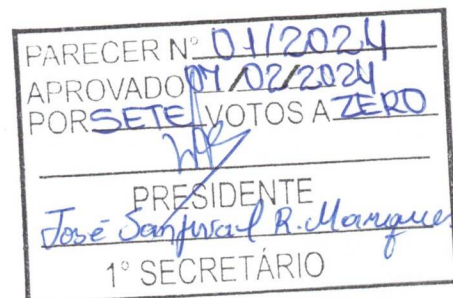 PARECER Nº 01/2024
APROVADO 07/02/2024
POR SETE VOTOS A ZERO
PRESIDENTE
José R. Marques
1º SECRETÁRIO